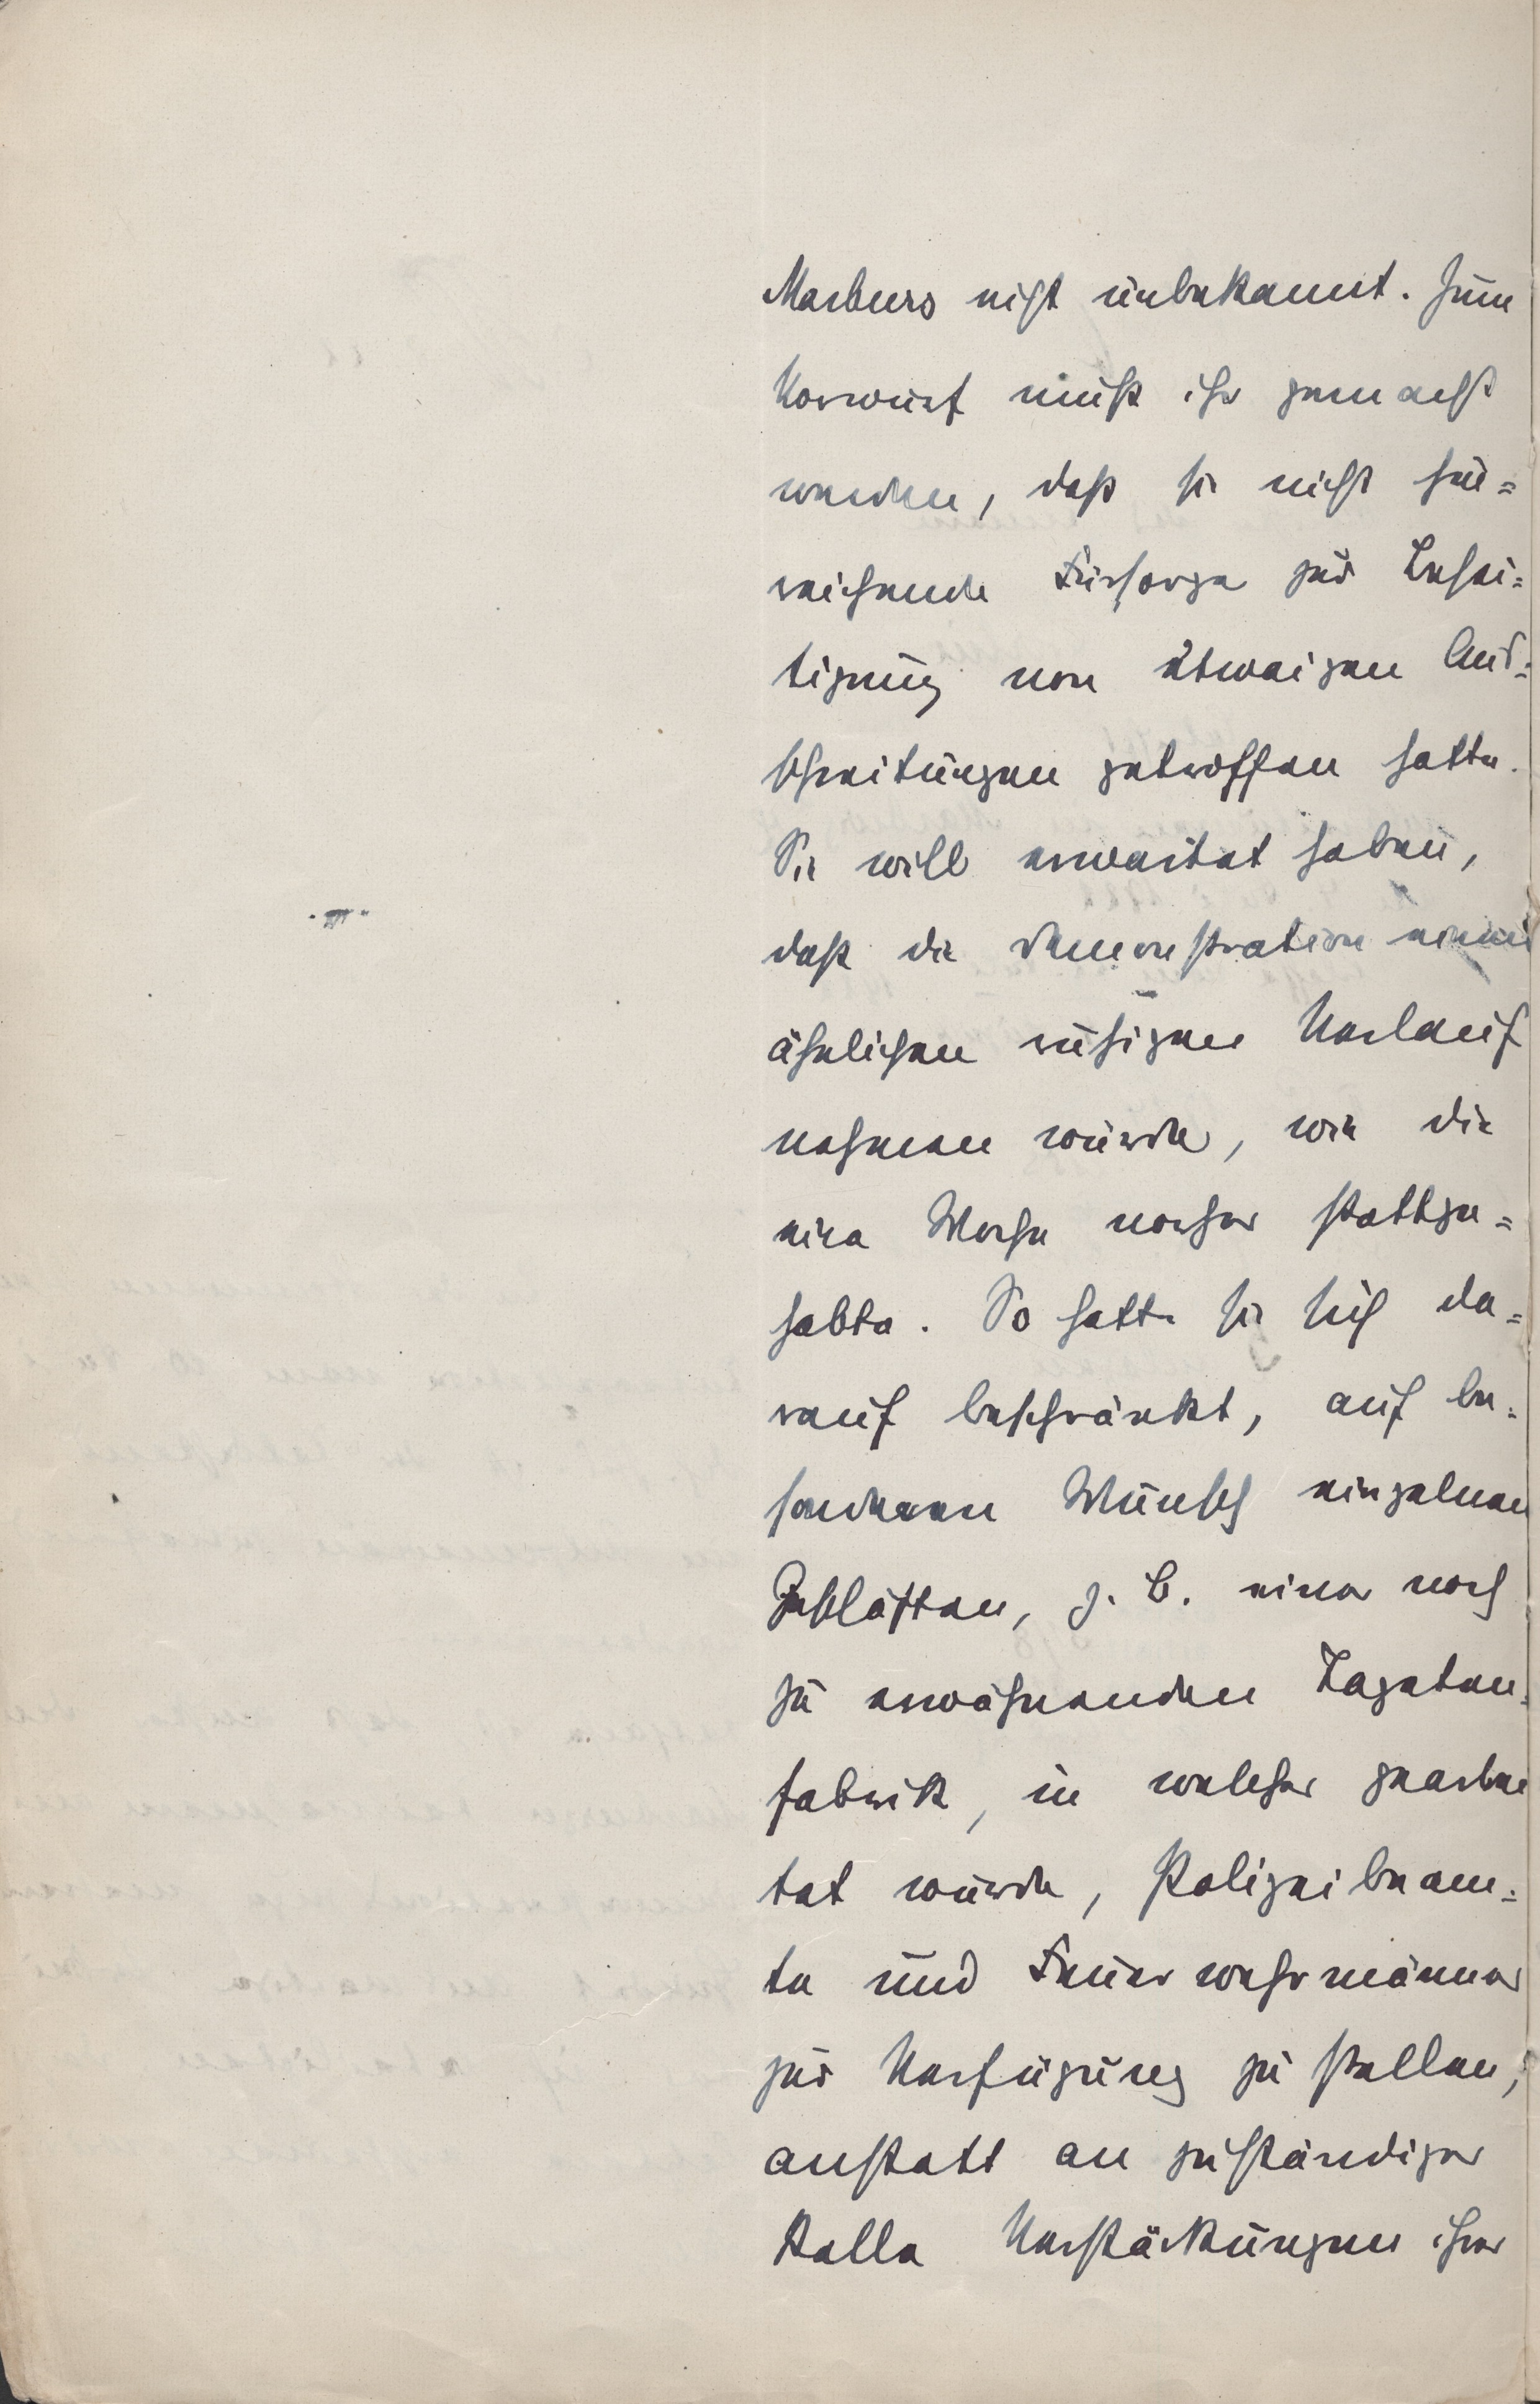 Markers nicht unbekannt. Zum
Vorwurf muß ihr gemacht
werden, daß sie nicht hin=
reichende Fürsorge zur Besei=
tigung von etwaigen Aus=
schreitungen getroffen hatte.
Sie will erwartet haben,
daß die Demonstration einen
ähnlichen ruhigen Verlauf
nehmen würde, wie die
eine Woche vorher stattge=
habte. So hatte sie sich da=
rauf beschränkt, auf be=
sonderen Wunsch einzelnen
Geschäften, z. B. einer noch
zu erwähnenden Tapeten=
fabrik, in welcher gearbei
tet wurde, Polizeibeam=
te und Feuerwehrmänner
zur Verfügung zu stellen,
anstatt an zuständiger
Stelle Verstärkungen ihrer